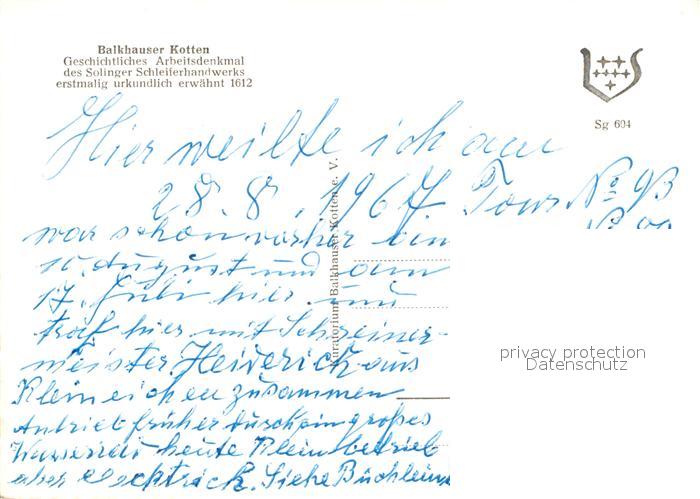 Balkhauser Kotten
Geschichtliches Arbeitsdenkmal
des Solinger Schleiferhandwerks
erstmalig urkundlich erwähnt 1612
Sg 604
Hier weilte ich am
28. 8. 1967 Tour No 93
war schon vorher am
16. August und am
17. Juli hier und
traf hier mit Schreiner-
meister Heiderich aus
Kleineichen zusammen
Antrieb früher durch ein großes
Wasserrad heute Kleinbetrieb
aber elecktrick. Siehe Büchlein
Kuratorium Balkhauser Kotten e. V.
privacy protection
Datenschutz